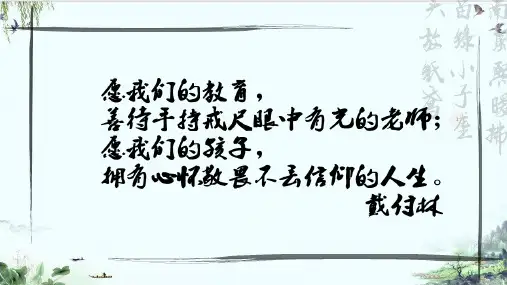 愿我们的教育，
善待手持戒尺眼中有光的老师；
愿我们的孩子，
拥有心怀敬畏不丢信仰的人生。
戴付林